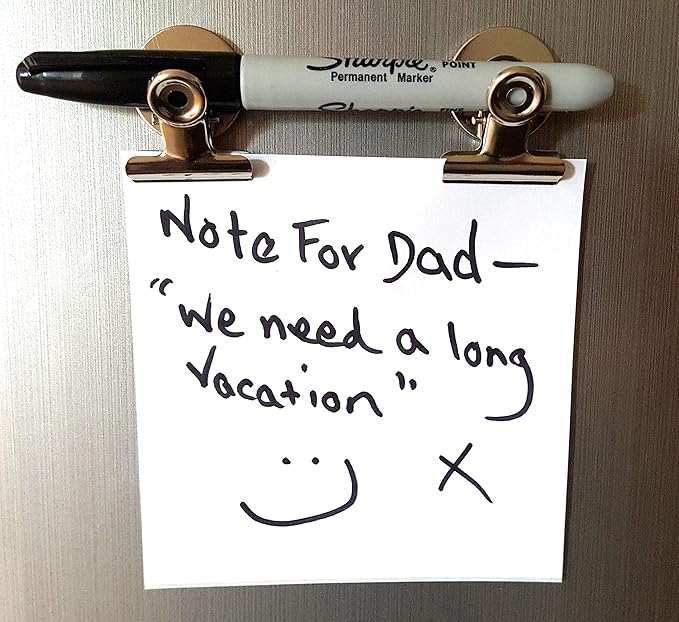 Sharpie® POINT
Permanent Marker
Sharpie FINE
Note For Dad—
"We need a long
vacation"
X